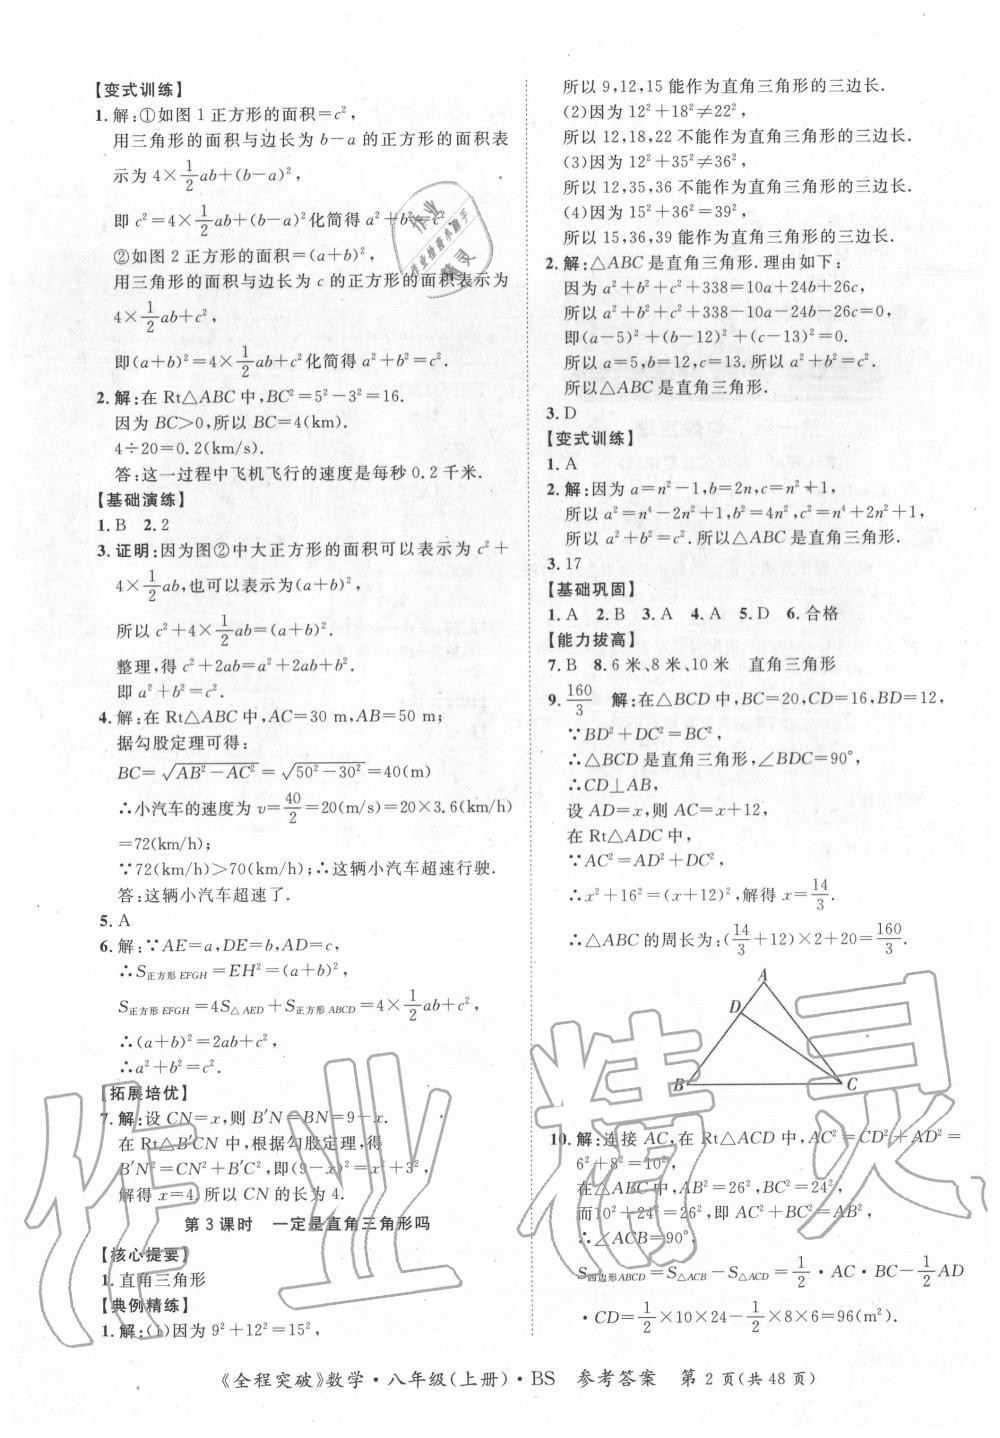 【变式训练】
1. 解:①如图 1 正方形的面积=c²,
用三角形的面积与边长为 b－a 的正方形的面积表
示为 4×1/2ab+(b－a)²,
即 c²=4×1/2ab+(b－a)²化简得 a²+b²=c².
②如图 2 正方形的面积=(a+b)²,
用三角形的面积与边长为 c 的正方形的面积表示为
4×1/2ab+c²,
即(a+b)²=4×1/2ab+c²化简得 a²+b²=c².
2. 解:在 Rt△ABC 中,BC²=5²－3²=16.
因为 BC>0,所以 BC=4(km).
4÷20=0.2(km/s).
答:这一过程中飞机飞行的速度是每秒 0.2 千米.
【基础演练】
1. B 2. 2
3. 证明:因为图②中大正方形的面积可以表示为 c²+
4×1/2ab,也可以表示为(a+b)².
所以 c²+4×1/2ab=(a+b)².
整理,得 c²+2ab=a²+2ab+b².
即 a²+b²=c².
4. 解:在 Rt△ABC 中,AC=30 m,AB=50 m;
据勾股定理可得:
BC=√(AB²－AC²)=√(50²－30²)=40(m)
∴小汽车的速度为 v=40/2=20(m/s)=20×3.6(km/h)
=72(km/h);
∵72(km/h)>70(km/h);∴这辆小汽车超速行驶.
答:这辆小汽车超速了.
5. A
6. 解:∵AE=a,DE=b,AD=c,
∴S正方形EFGH=EH²=(a+b)²,
S正方形EFGH=4S△AED+S正方形ABCD=4×1/2ab+c²,
∴(a+b)²=2ab+c²,
∴a²+b²=c².
【拓展培优】
7. 解:设 CN=x,则 B′N=BN=9－x.
在 Rt△B′CN 中,根据勾股定理,得
B′N²=CN²+B′C²,即(9－x)²=x²+3²,
解得 x=4,所以 CN 的长为 4.
第 3 课时 一定是直角三角形吗
【核心提要】
1. 直角三角形
【典例精练】
1. 解:(1)因为 9²+12²=15²,
所以 9,12,15 能作为直角三角形的三边长.
(2)因为 12²+18²≠22²,
所以 12,18,22 不能作为直角三角形的三边长.
(3)因为 12²+35²≠36²,
所以 12,35,36 不能作为直角三角形的三边长.
(4)因为 15²+36²=39²,
所以 15,36,39 能作为直角三角形的三边长.
2. 解:△ABC 是直角三角形.理由如下:
因为 a²+b²+c²+338=10a+24b+26c,
所以 a²+b²+c²+338－10a－24b－26c=0,
即(a－5)²+(b－12)²+(c－13)²=0.
所以 a=5,b=12,c=13.所以 a²+b²=c².
所以△ABC 是直角三角形.
3. D
【变式训练】
1. A
2. 解:因为 a=n²－1,b=2n,c=n²+1,
所以 a²=n⁴－2n²+1,b²=4n²,c²=n⁴+2n²+1,
所以 a²+b²=c².所以△ABC 是直角三角形.
3. 17
【基础巩固】
1. A 2. B 3. A 4. A 5. D 6. 合格
【能力拔高】
7. B 8. 6 米、8 米、10 米 直角三角形
9. 160/3 解:在△BCD 中,BC=20,CD=16,BD=12,
∵BD²+DC²=BC²,
∴△BCD 是直角三角形,∠BDC=90°,
∴CD⊥AB,
设 AD=x,则 AC=x+12,
在 Rt△ADC 中,
∵AC²=AD²+DC²,
∴x²+16²=(x+12)²,解得 x=14/3.
∴△ABC 的周长为:(14/3+12)×2+20=160/3.
A
D
B
C
10. 解:连接 AC,在 Rt△ACD 中,AC²=CD²+AD²=
6²+8²=10²,
在△ABC 中,AB²=26²,BC²=24²,
而10²+24²=26²,即 AC²+BC²=AB²,
∴∠ACB=90°.
S四边形ABCD=S△ACB－S△ACD=1/2·AC·BC－1/2AD
·CD=1/2×10×24－1/2×8×6=96(m²).
《全程突破》数学·八年级(上册)·BS 参考答案 第 2 页(共 48 页)
作业精灵
作业
作业检查小助手
精灵